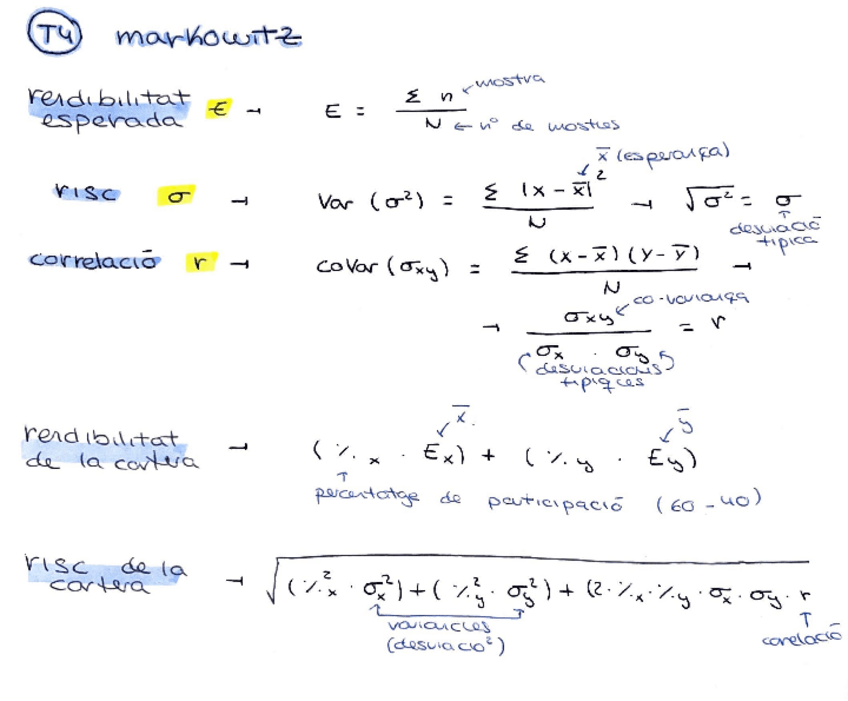 T4 markowitz
rendibilitat esperada E → E = Σ n / N
← mostra
← nº de mostres
x̄ (esperança)
risc σ → Var (σ²) = Σ |x - x̄|² / N → √σ² = σ
desviació típica
correlació r → coVar (σxy) = Σ (x - x̄) (y - ȳ) / N →
→ σxy / σx · σy = r
co-variança
(desviacions típiques)
x̄ ȳ
rendibilitat de la cartera → (%x · Ex) + (%y · Ey)
percentatge de participació (60 - 40)
risc de la cartera → √(%²x · σ²x) + (%²y · σ²y) + (2 · %x · %y · σx · σy · r
variancies
(desviació²)
correlació